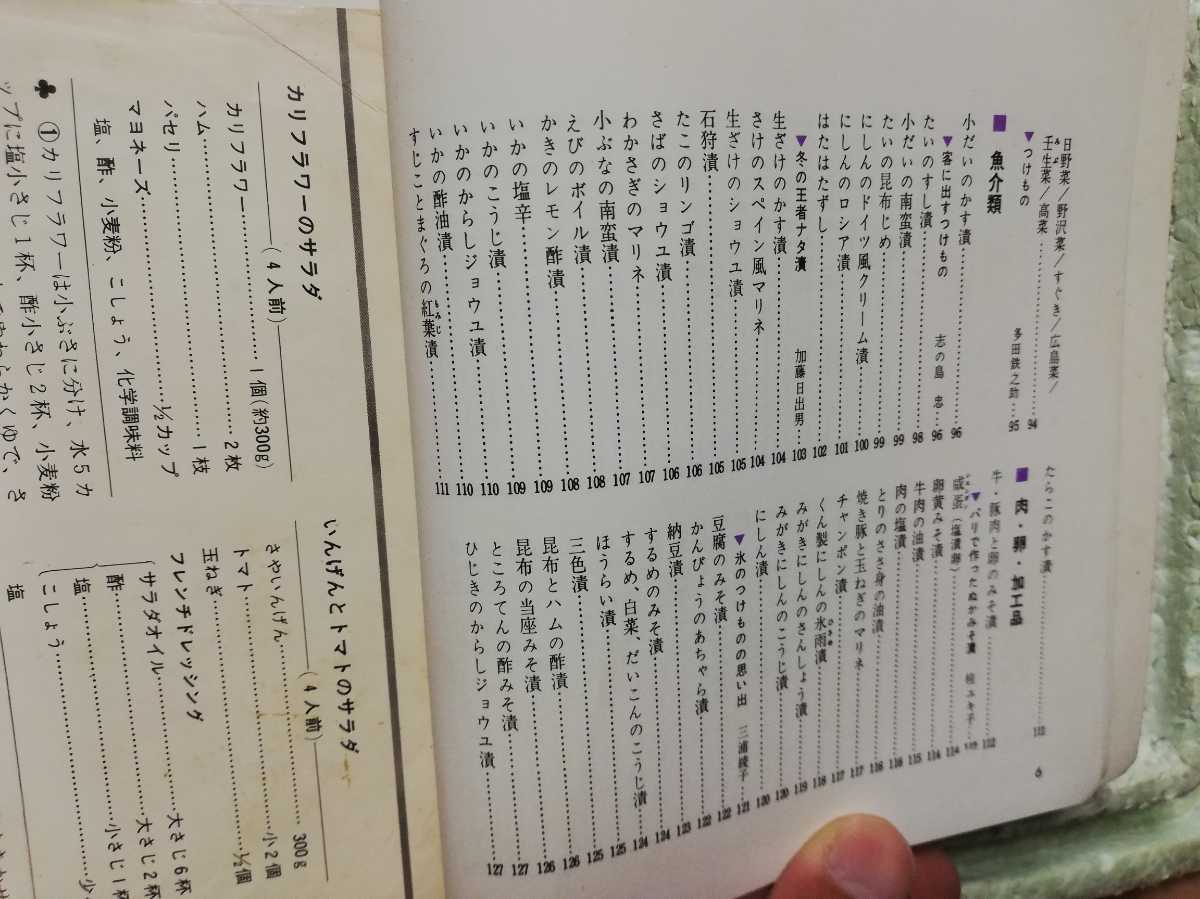 日野菜／野沢菜／すぐき／広島菜／
壬生菜／高菜……94
▼つけもの 多田鉄之助…95
■魚介類
小だいのかす漬……96
▼客に出すつけもの 志の島 忠…96
たいのすし漬……98
小だいの南蛮漬……99
たいの昆布じめ……99
にしんのドイツ風クリーム漬……100
にしんのロシア漬……101
はたはたずし……102
▼冬の王者ナタ漬 加藤日出男…103
生ざけのかす漬……104
さけのスペイン風マリネ……104
生ざけのショウユ漬……105
石狩漬……105
たこのリンゴ漬……106
さばのショウユ漬……106
わかさぎのマリネ……107
小ぶなの南蛮漬……107
えびのボイル漬……108
かきのレモン酢漬……108
いかの塩辛……109
いかのこうじ漬……109
いかのからしジョウユ漬……110
いかの酢油漬……110
すじことまぐろの紅葉漬……111
もみじ
たらこのかす漬……112
■肉・卵・加工品
牛・豚肉と卵のみそ漬……112
▼パリで作ったぬかみそ漬 桧ユキ子…113
咸蛋（塩漬卵）……114
卵黄みそ漬……114
牛肉の油漬……115
肉の塩漬……116
とりのささ身の油漬……116
焼き豚と玉ねぎのマリネ……117
チャンポン漬……117
くん製にしんの氷雨漬……118
ひさめ
みがきにしんのさんしょう漬……119
みがきにしんのこうじ漬……120
にしん漬……120
▼氷のつけものの思い出 三浦綾子…121
豆腐のみそ漬……122
かんぴょうのあちゃら漬……122
納豆漬……123
するめのみそ漬……124
するめ、白菜、だいこんのこうじ漬……124
ほうらい漬……125
三色漬……125
昆布とハムの酢漬……126
昆布の当座みそ漬……126
ところてんの酢みそ漬……127
ひじきのからしジョウユ漬……127
6
カリフラワーのサラダ
（4人前）
カリフラワー……1個(約300g)
ハム……2枚
パセリ……1枝
マヨネーズ……½カップ
塩、酢、小麦粉、こしょう、化学調味料
♣ ①カリフラワーは小ぶさに分け、水5カ
ップに塩小さじ1杯、酢小さじ2杯、小麦粉
いんげんとトマトのサラダ
（4人前）
さやいんげん……300g
トマト……小2個
玉ねぎ……½個
フレンチドレッシング
サラダオイル……大さじ6杯
酢……大さじ2杯
塩……小さじ1杯
こしょう……少
塩